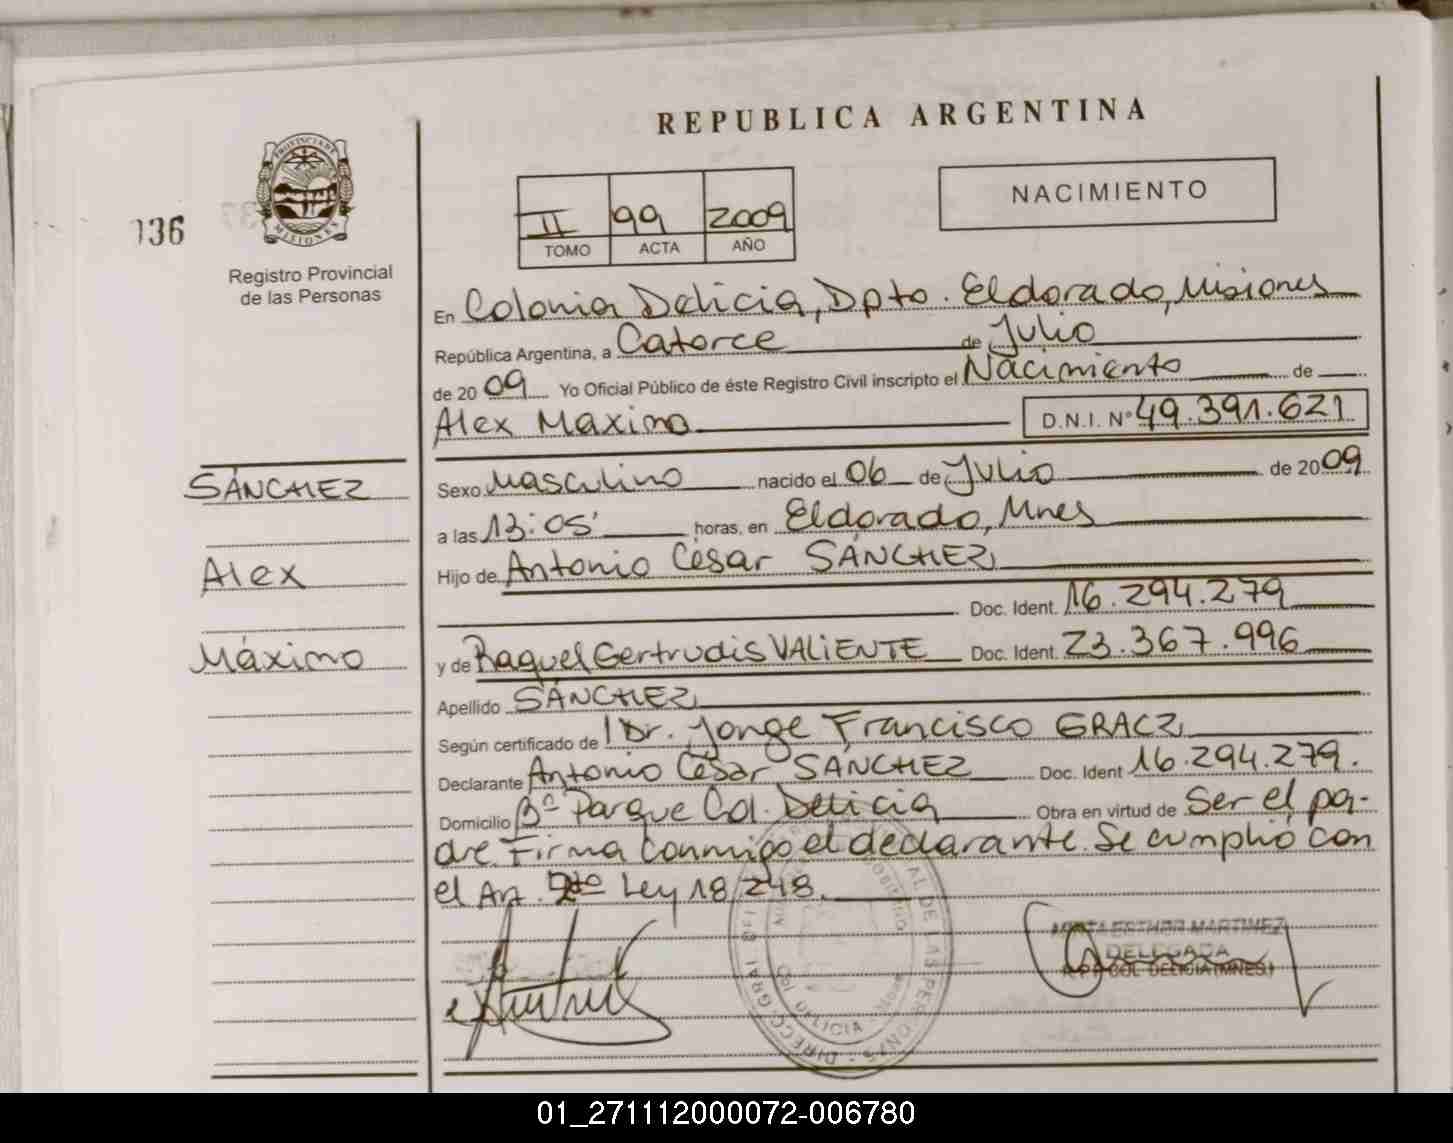 REPUBLICA ARGENTINA
NACIMIENTO
II 99 2009
TOMO ACTA AÑO
136
PROVINCIA DE
MISIONES
Registro Provincial
de las Personas
En Colonia Delicia, Dpto. Eldorado, Misiones
República Argentina, a Catorce de Julio
de 2009 Yo Oficial Público de éste Registro Civil inscripto el Nacimiento de
Alex Maximo D.N.I. Nº 49.391.621
SÁNCHEZ
Alex
Máximo
Sexo Masculino nacido el 06 de Julio de 2009
a las 13:05' horas, en Eldorado, Mnes
Hijo de Antonio César SÁNCHEZ
Doc. Ident. 16.294.279
y de Raquel Gertrudis VALIENTE Doc. Ident. 23.367.996
Apellido SÁNCHEZ
Según certificado de Dr. Jorge Francisco GRACZ
Declarante Antonio César SÁNCHEZ Doc. Ident 16.294.279.
Domicilio Bº Parque Col. Delicia Obra en virtud de Ser el pa-
dre. Firma conmigo el declarante. Se cumplió con
el Art. 2do Ley 18.248.
MARTINEZ
DELEGADA
COL. DELICIA (MNES.)
DE LAS PERSONAS
COL. DELICIA
01_271112000072-006780